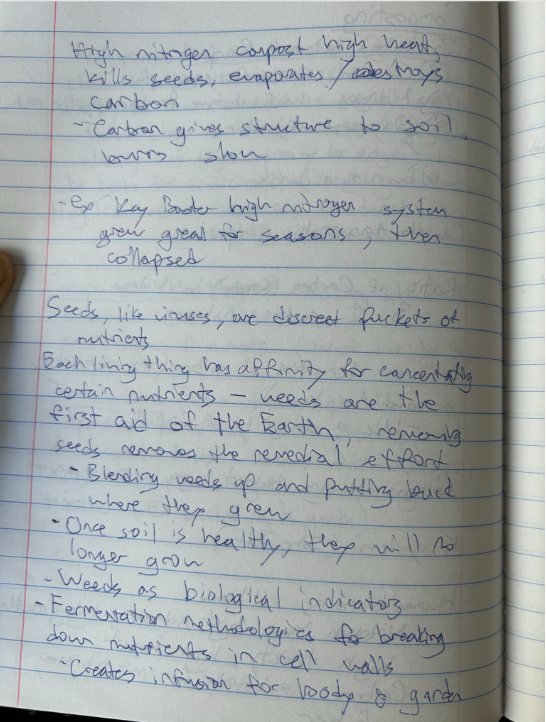 High nitrogen compost high heat,
kills seeds, evaporates / destroys
carbon
- Carbon gives structure to soil,
burns slow
- Ex Key high nitrogen system
grew great for seasons, then
collapsed
Seeds, like viruses, are discreet packets of
nutrients
Each living thing has affinity for concentrating
certain nutrients – weeds are the
first aid of the Earth, removing
seeds removes the remedial effort
- Blending weeds up and putting back
where they grew
- Once soil is healthy, they will no
longer grow
- Weeds as biological indicators
- Fermentation methodologies for breaking
down nutrients in cell walls
- Creates infusion for body & garden